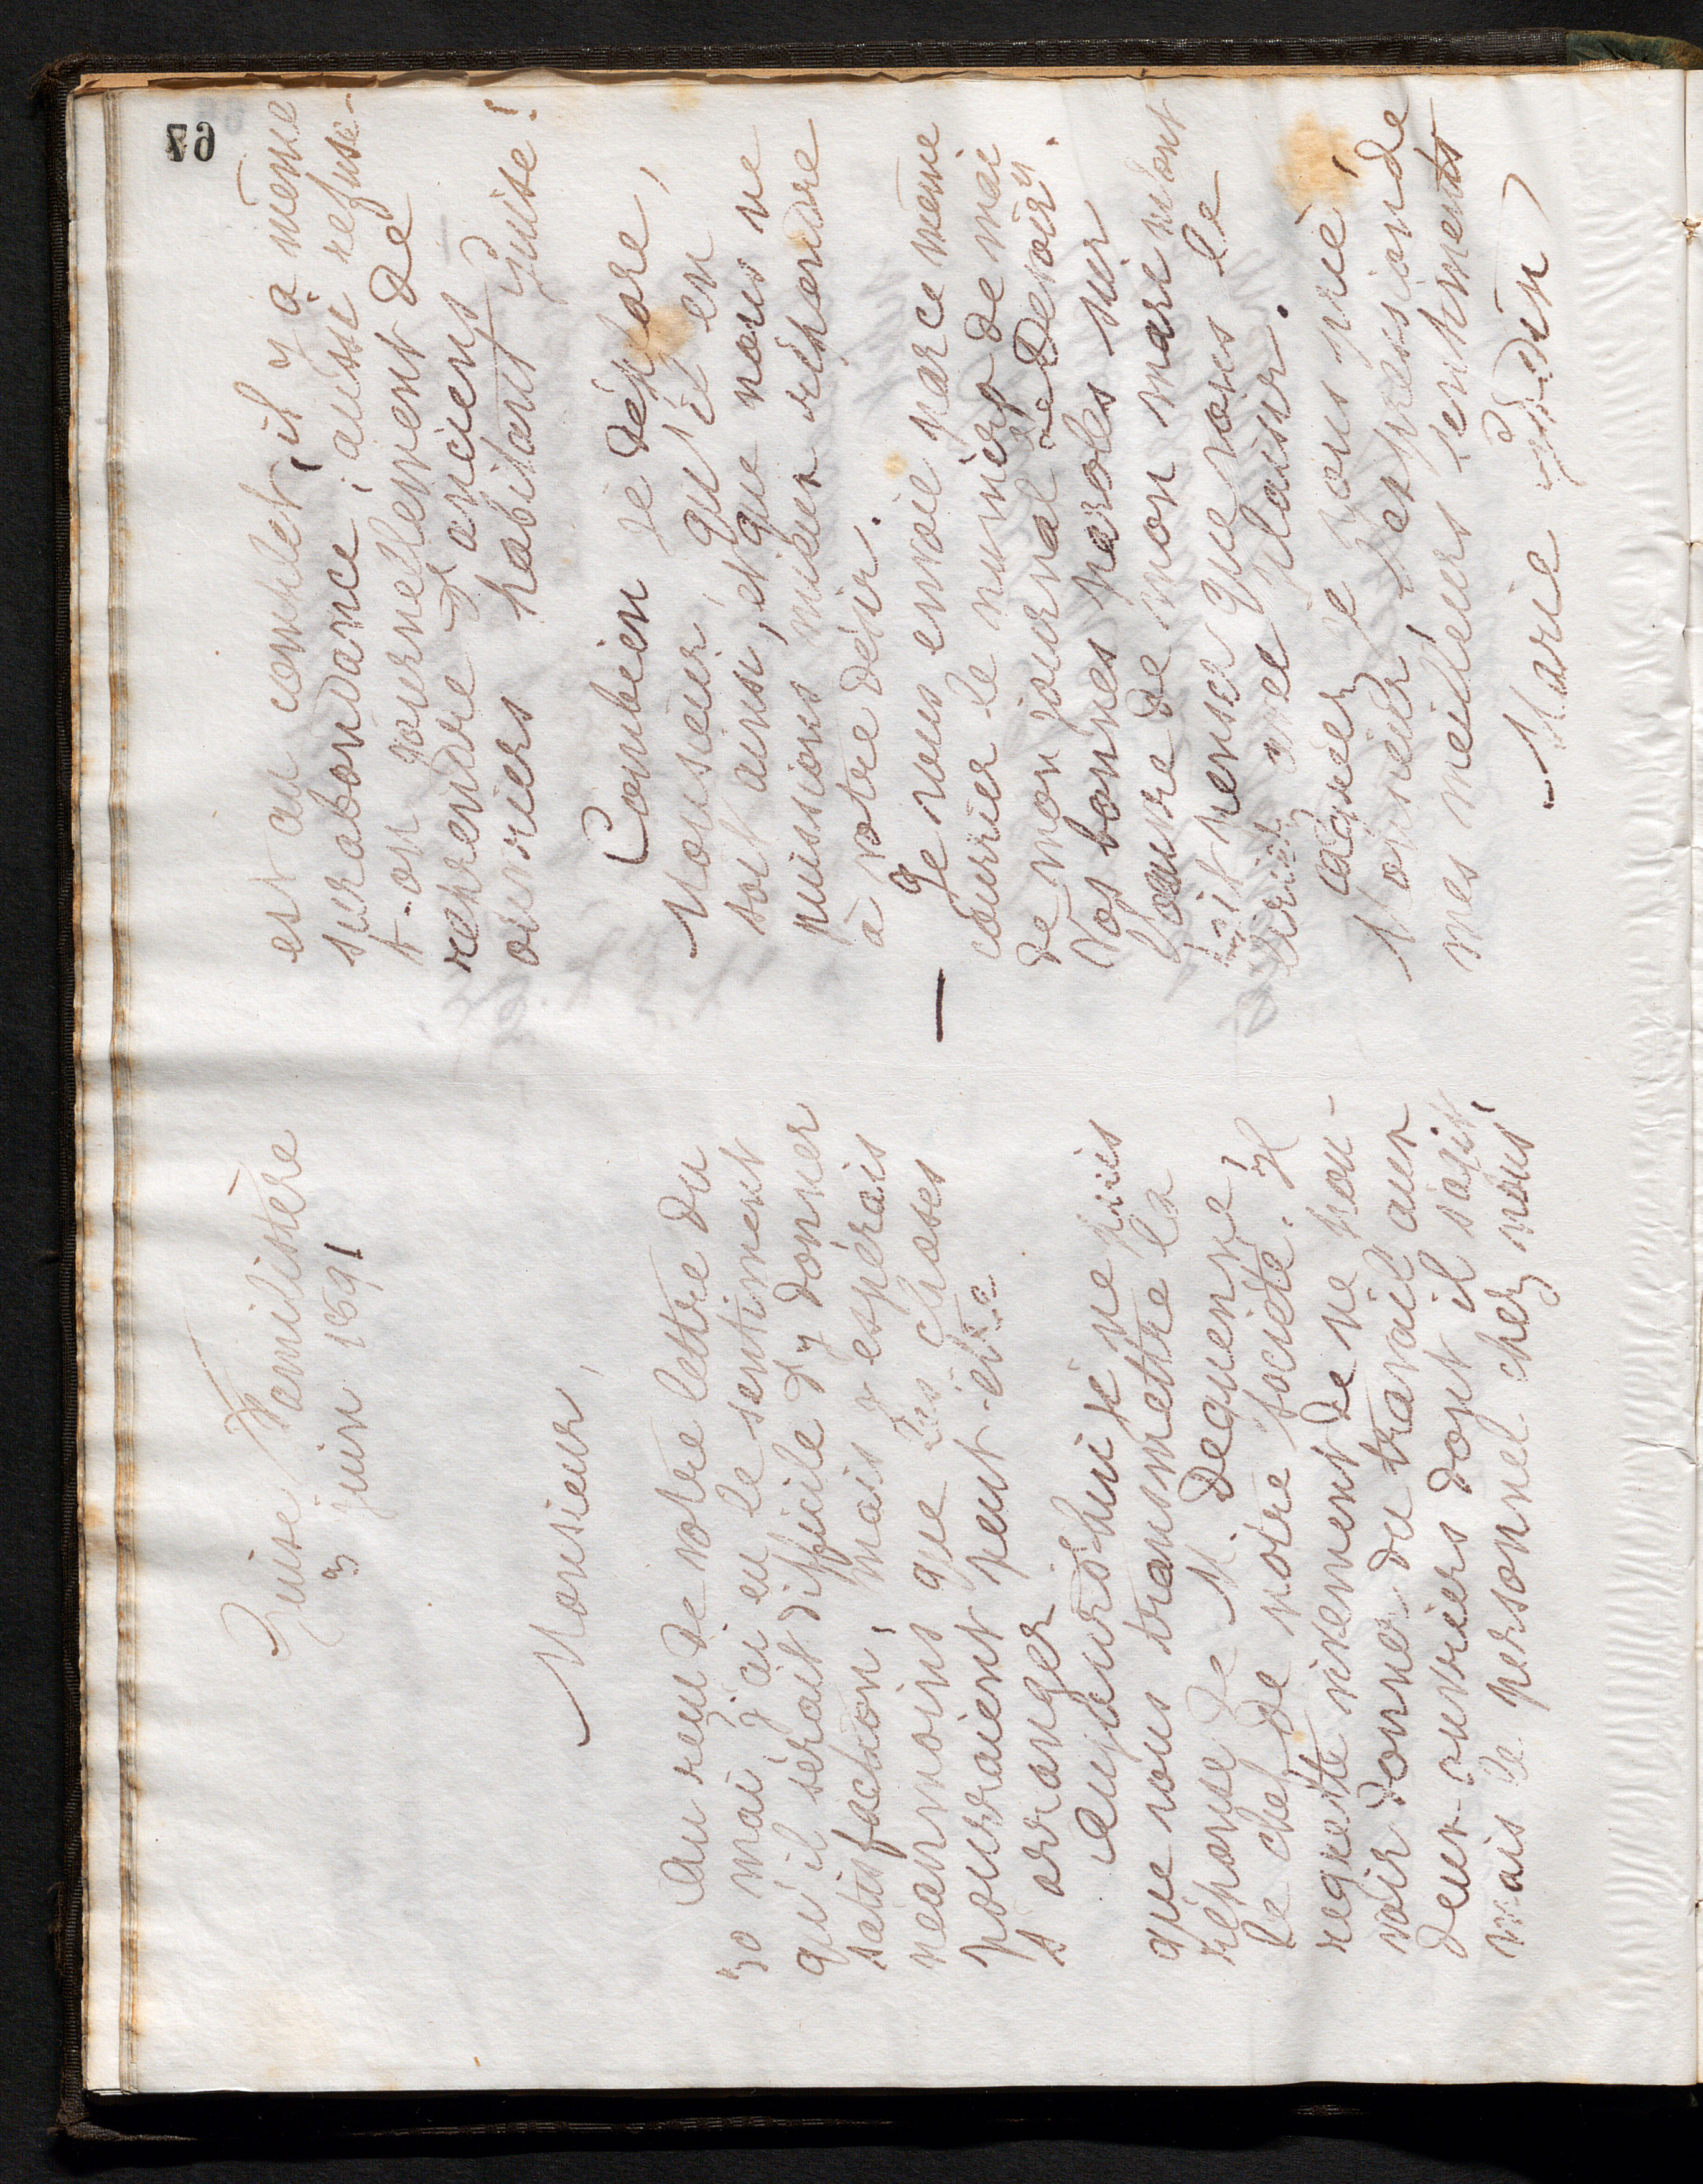 Guise Familistère
3 juin 1891
Monsieur,
Au reçu de votre lettre du
30 mai j'ai eu le sentiment
qu'il serait difficile d'y donner
satisfaction, mais j'espérais
néanmoins que les choses
pourraient peut-être
s'arranger
Aujourd'hui je ne puis
que vous transmettre la
réponse de M. Dequenne
le chef de notre société. Il
regrette vivement de ne pou-
voir donner du travail aux
deux ouvriers dont il s'agit,
mais le personnel chez nous
est au complet, il y a même
surabondance; aussi refuse-
t-on journellement de
reprendre d'anciens
ouvriers habitant Guise!
Combien je déplore,
Monsieur, qu'il en
soit ainsi, et que nous ne
puissions mieux répondre
à votre désir.
Je vous envoie par ce même
courrier le numéro de mai
de mon journal "le Devoir".
Vos bonnes paroles sur
l'œuvre de mon mari m'ont
fait penser que vous le
liriez avec plaisir.
Agréez je vous prie,
Monsieur, l'expression de
mes meilleurs sentiments
Marie Godin
67